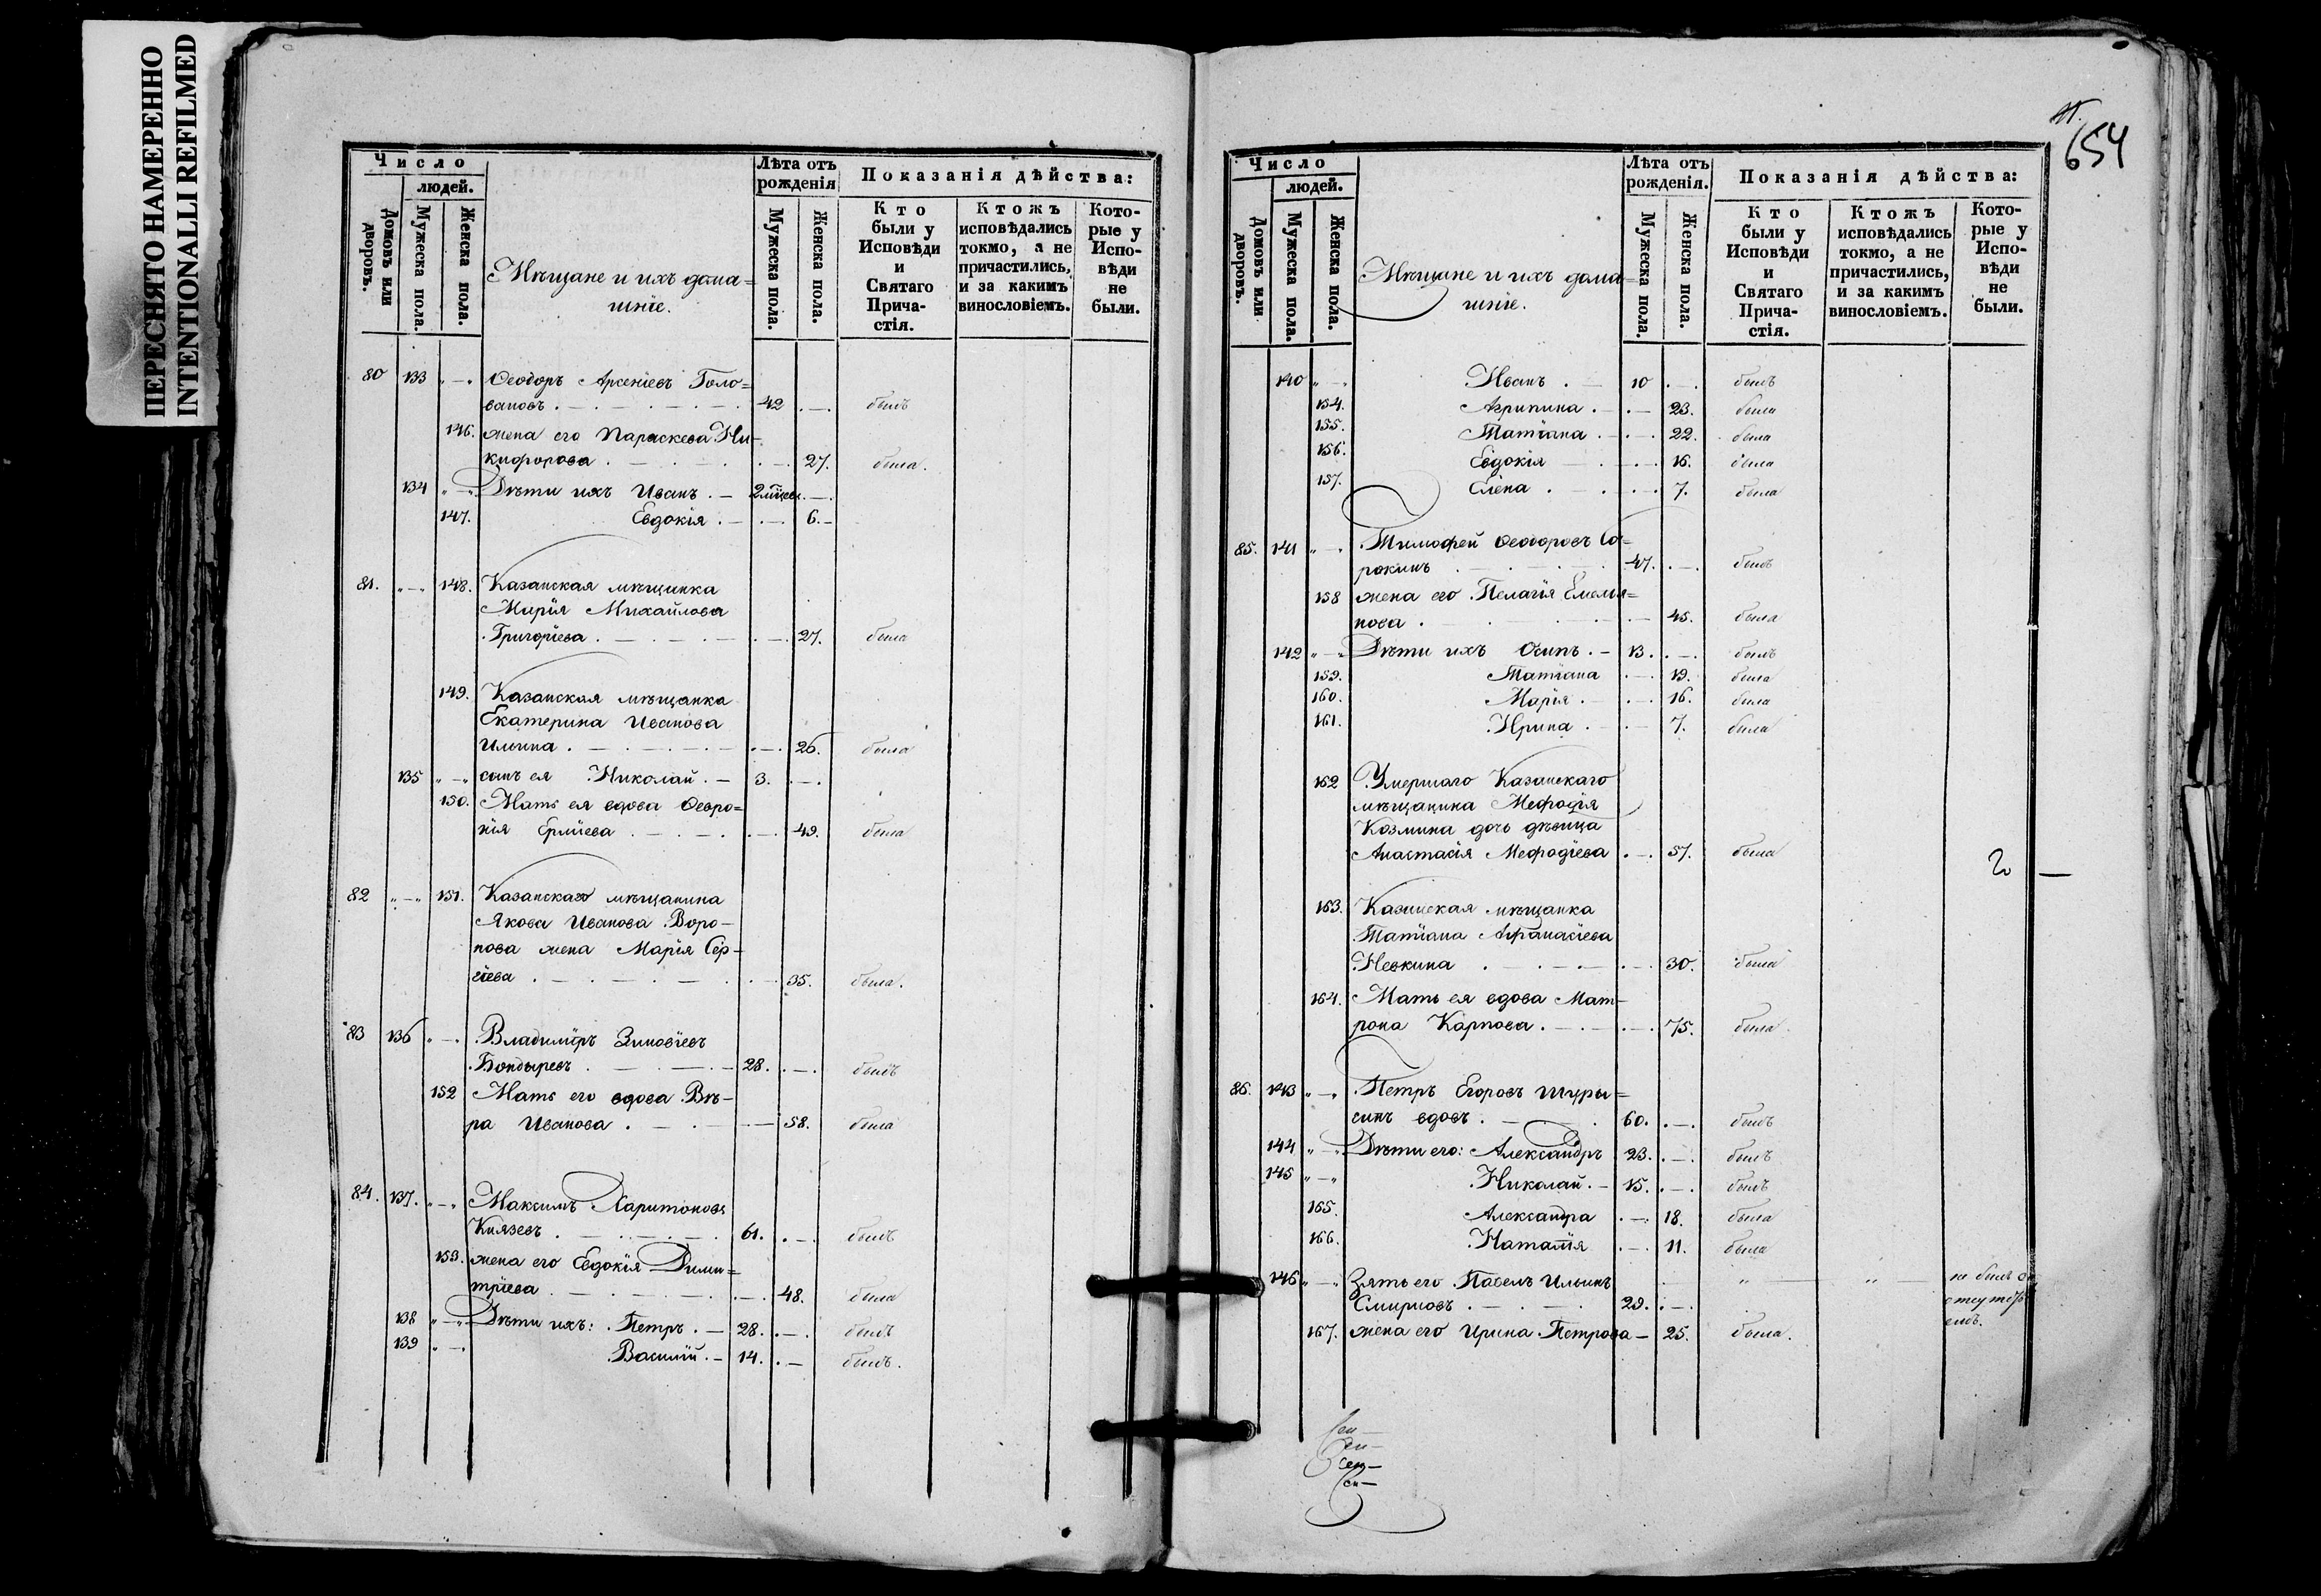 ПЕРЕСНЯТО НАМЕРЕННО
INTENTIONALLI REFILMED
Число
людей.
Домовъ или дворовъ.
Мужеска пола.
Женска пола.
Мѣщане и ихъ дома=
шніе.
Лѣта отъ рожденія
Мужеска пола.
Женска пола.
Показанія дѣйства:
Кто были у Исповѣди и Святаго Прича-стія.
Ктожъ исповѣдались токмо, а не причастились, и за какимъ винословіемъ.
Кото-рые у Испо-вѣди не были.
80 133 „—„ Ѳеодоръ Арсеніевъ Голо=
вановъ . — 42 . — . былъ
146. жена его Параскева Ни-
кифорова . — 27. была.
134 „—„ Дѣти ихъ Иванъ . — 2 мѣсец. . — .
147. Евдокія . — 6. —
81. „—„ 148. Казанская мѣщанка
Марія Михайлова
Григоріева . — 27. была
149. Казанская мѣщанка
Екатерина Иванова
Ильина . — 26. была
135 „—„ сынъ ея Николай . — 3. . — .
150. Мать ея вдова Ѳевро=
нія Ерміева . — 49. была
82 „—„ 151. Казанскаго мѣщанина
Якова Иванова Воро-
нова жена Марія Сер-
гіева . — 35. была.
83 136 „—„ Владиміръ Зиновіевъ
Бондыревъ . — 28. . — . былъ
152 Мать его вдова Вѣ-
ра Иванова . — 58. была
84. 137. „—„ Максимъ Харитоновъ
Князевъ . — 61. . — . былъ
153. жена его Евдокія Дими=
тріева . — 48. была
138 „—„ Дѣти ихъ: Петръ . — 28. . — . былъ
139 „—„ Василій . — 14. . — былъ.
654
Число
людей.
Домовъ или дворовъ.
Мужеска пола.
Женска пола.
Мѣщане и ихъ дома=
шніе.
Лѣта отъ рожденія.
Мужеска пола.
Женска пола.
Показанія дѣйства:
Кто были у Исповѣди и Святаго Прича-стія.
Ктожъ исповѣдались токмо, а не причастились, и за какимъ винословіемъ.
Кото-рые у Испо-вѣди не были.
140 „—„ Иванъ . — 10 . — . былъ
154. Агрипина . — 23. была
155. Татіана . — 22. была
156. Евдокія — 16. была
157. Елена . — 7. была
85. 141 „—„ Тимофей Ѳеодоровъ Со=
рокинъ . — 47. . — . былъ
158 жена его Пелагія Емелья=
нова . — 45. была
142 „—„ Дѣти ихъ Осипъ . — 13. . — . былъ
159. Татіана . — 19. была
160. Марія . — 16. была
161. Ирина . — 7. была
162 Умершаго Казанскаго
мѣщанина Мефодія
Козмина дочь дѣвица
Анастасія Мефодіева . — 57. была
2 —
163. Казанская мѣщанка
Татіана Афанасіева
Невкина . — 30. была
164. Мать ея вдова Мат-
рона Карпова . — 75. была.
86. 143 „—„ Петръ Егоровъ Шуры=
синъ вдовъ . — 60. . — . былъ
144 „—„ Дѣти его: Александръ 23. . — . былъ
145 „—„ Николай . — 15. . — . былъ
165. Александра . — 18. была
166. Наталія . — 11. была
146 „—„ Зять его Павелъ Ильинъ „ „ не былъ
Смирновъ . — 29. . — .
167. жена его Ирина Петрова — 25. была.